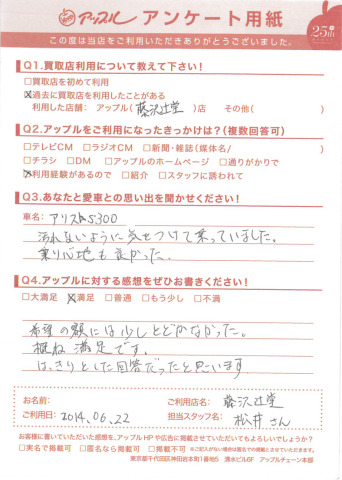 アップル アンケート用紙
25th
この度は当店をご利用いただきありがとうございました。
Q1.買取店利用について教えて下さい!
□買取店を初めて利用
☒過去に買取店を利用したことがある
利用した店舗: アップル(藤沢辻堂)店 その他( )
Q2.アップルをご利用になったきっかけは?(複数回答可)
□テレビCM □ラジオCM □新聞・雑誌(媒体名/ )
□チラシ □DM □アップルのホームページ □通りがかりで
☒利用経験があるので □紹介 □スタッフに誘われて
Q3.あなたと愛車との思い出を聞かせください!
車名:アリストS300
汚れないように気をつけて乗っていました。
乗り心地も良かった.
Q4.アップルに対する感想をぜひお書きください!
□大満足 ☒満足 □普通 □もう少し □不満
希望の額には少しとどかなかった。
概ね満足です。
はっきりとした回答だったと思います
お名前: ご利用店名:藤沢辻堂
ご利用日:2014.06.22 担当スタッフ名:松井さん
お客様に書いていただいた感想を、アップルHPや広告に掲載させていただいてもよろしいでしょうか?
□実名で掲載可 □匿名なら掲載可 □掲載不可 ※ご記入がない場合は匿名での掲載とさせていただきます。
東京都千代田区神田岩本町1番地5 清水ビル6F アップルチェーン本部